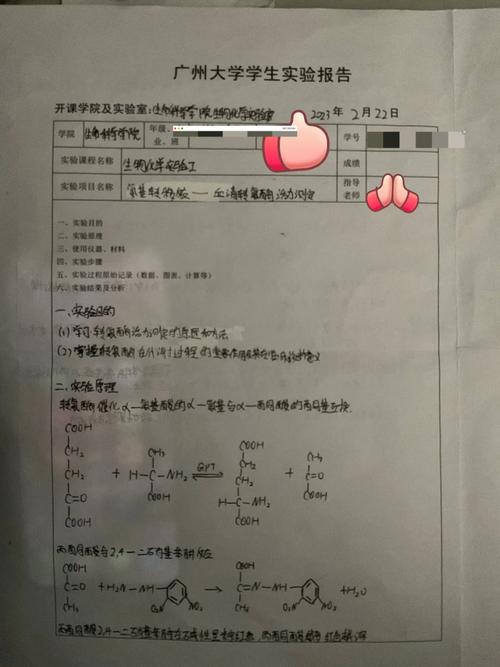 广州大学学生实验报告
开课学院及实验室:生命科学学院生物化学实验室 2023年 2月 22日
学院 生命科学学院 年级、业、班 学号
实验课程名称 生物化学实验I 成绩
实验项目名称 氨基转换反应——血清转氨酶活力测定 指导老师
一、实验目的
二、实验原理
三、使用仪器、材料
四、实验步骤
五、实验过程原始记录(数据、图表、计算等)
六、实验结果及分析
一、实验目的
(1) 学习转氨酶活力测定的原理和方法
(2) 掌握转氨酶在代谢过程的重要作用及其在临床诊断意义
二、实验原理
转氨酶催化α-氨基酸的α-氨基与α-酮酸的 酮基互换
COOH
CH₂
CH₂
C=O
COOH
+
CH₃
H-C-NH₂
COOH
GPT
COOH
CH₂
CH₂
H-C-NH₂
COOH
+
CH₃
C=O
COOH
丙酮酸与2,4-二硝基苯肼反应
COOH
C=O
CH₃
+ H₂N-NH-
O₂N
NO₂
COOH
C=N-NH-
CH₃
O₂N
NO₂
+ H₂O
丙酮酸2,4-二硝基苯肼在碱性